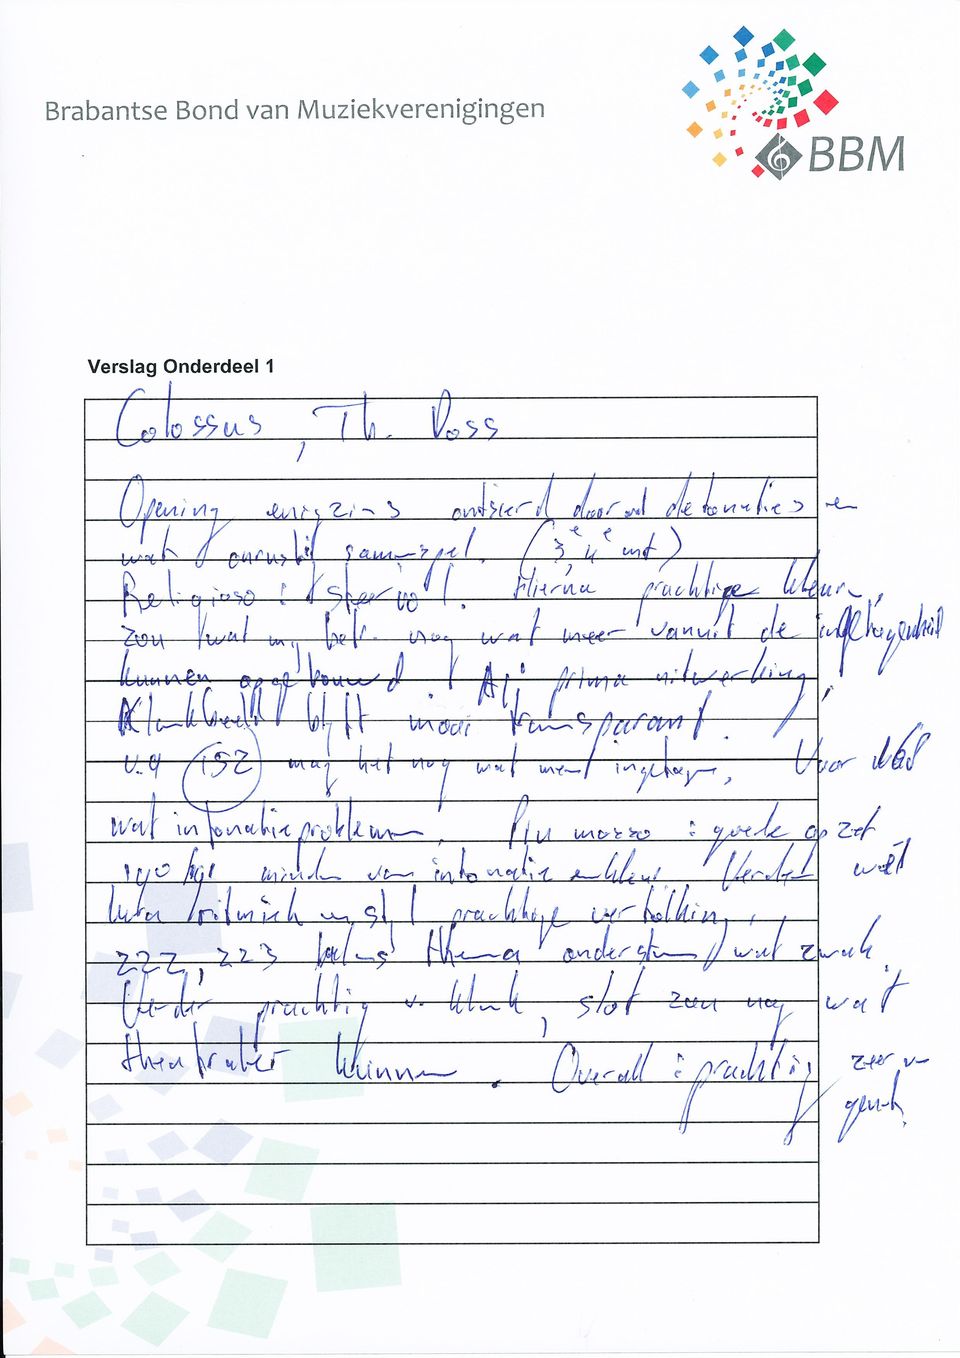 Brabantse Bond van Muziekverenigingen
BBM
Verslag Onderdeel 1
Colossus, Th. Doss
Opening enigzins ontsierd door detonaties en
wat onrustig samenspel. (3e, 4e mt)
Religioso: sfeervol. Hierna prachtige kleur,
zou wat mij betr. nog wat meer vanuit de ingetogenheid
kunnen opgebouwd. Al prima uitwerking,
Klankbeeld blijft mooi transparant.
v.a 152 mag het nog wat meer ingetogen, Voor 168
wat intonatieproblemen. Piu mosso: goede opzet
190 minder van intonatie Verder wel
ritmisch prachtige vertolking.
222, 223 thema ondersteun wat zwak.
Verder prachtig v. klank, slot zou nog wat
theatraler kunnen. Overall: prachtig zeer v